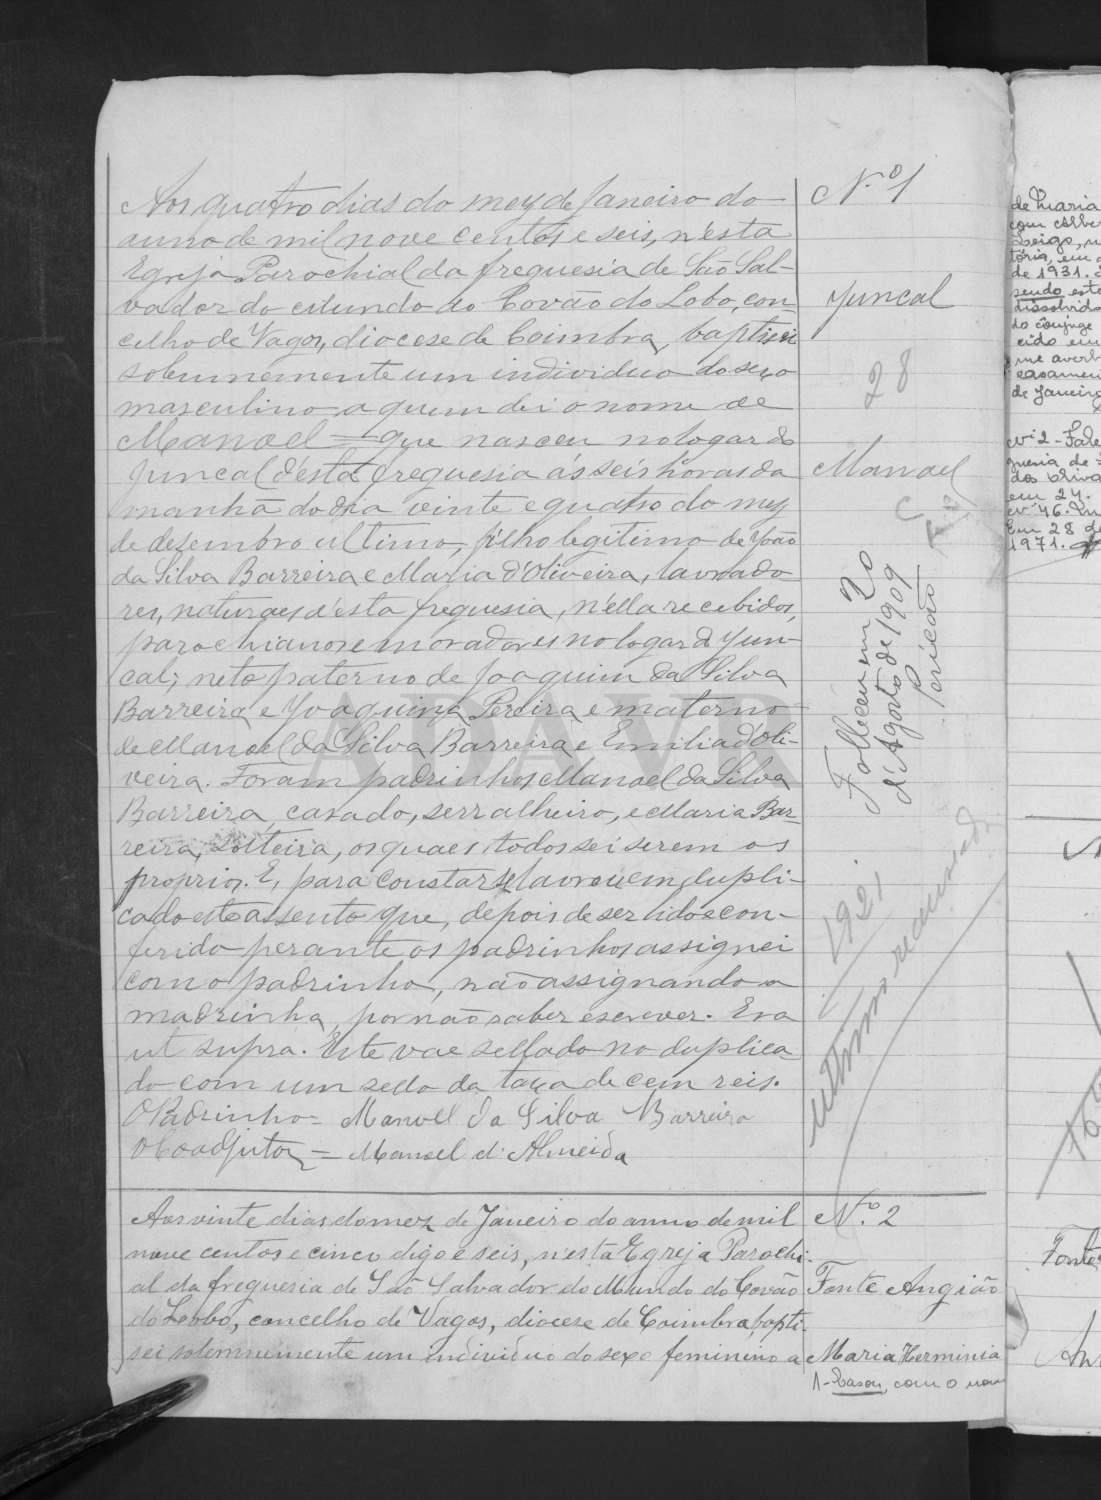 Aos quatro dias do mez de Janeiro do
anno de mil nove centos e seis, n'esta
Egreja Parochial da freguesia de São Sal-
vador do Mundo do Covão do Lobo, con-
celho de Vagos, diocese de Coimbra, baptisei
solemnemente um individuo do sexo
masculino a quem dei o nome de
Manoel = que nasceu no logar do
Juncal d'esta freguesia ás seis horas da
manhã do dia vinte e quatro do mez
de dezembro ultimo, filho legitimo de João
da Silva Barreira e Maria d'Oliveira, lavrado
res, naturaes d'esta freguesia, n'ella recebidos,
parochianos e moradores no logar do Jun-
cal; neto paterno de Joaquim da Silva
Barreira e Joaquina Pereira e materno
de Manoel da Silva Barreira e Emilia d'Oli-
veira. Foram padrinhos Manoel da Silva
Barreira, casado, serralheiro, e Maria Bar-
reira, solteira, os quaes todos sei serem os
proprios. E, para constar se lavrou em dupli-
cado este assento que, depois de ser lido e con-
ferido perante os padrinhos assignei
com o padrinho, não assignando a
madrinha, por não saber escrever. Era
ut supra. Este vae sellado no duplica
do com um sello da taxa de cem reis.
O Padrinho = Manoel da Silva Barreira
O Coadjutor = Manoel d'Almeida
N.º 1
Juncal
28
Manoel
Falleceu em 20
d'Agosto de 1909
1921
ultimo recenseado
Aos vinte dias do mez de Janeiro do anno de mil
nove centos e cinco digo e seis, n'esta Egreja Parochi-
al da freguesia de São Salvador do Mundo do Covão
do Lobo, concelho de Vagos, diocese de Coimbra, bapti-
sei solemnemente um individuo do sexo feminino a
N.º 2
Fonte Angião
Maria Herminia
1-Casou, com o
de Maria
tória, em
de 1931.
sendo este
dissolvido
do cônjuge
cido em
me averb
casamen
de Janeiro
Nº 2 - Fale
em 24.
Nº 46.
Em 28 de
1971.
Fonte
ADAVR